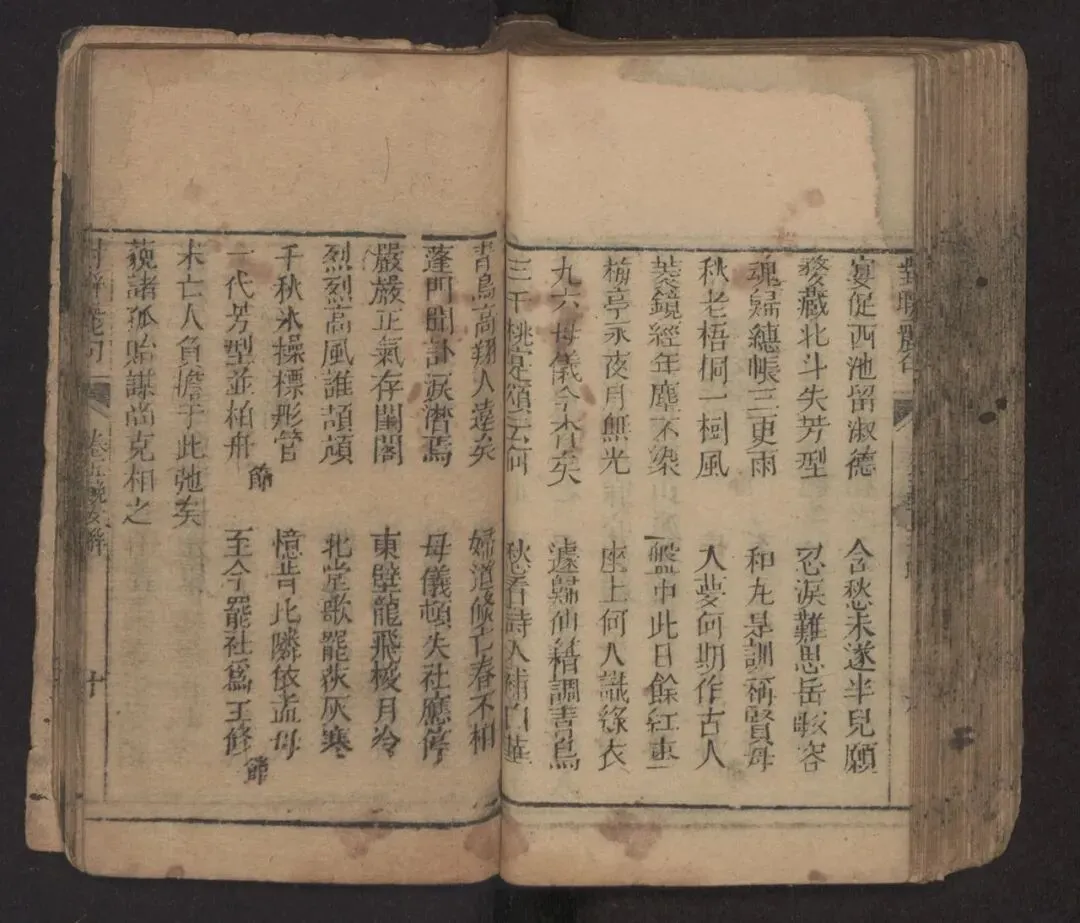 宴促西池留淑德　含愁未遂半兒願
婺藏北斗失芳型　忍淚難思岳畝容
魂歸繐帳三更雨　和丸是訓稱賢母
秋老梧桐一樹風　入夢何期作古人
裝鏡經年塵不染　盤中此日餘紅棗
椿亭永夜月無光　座上何人識綵衣
九六母儀今杳矣　遽歸仙籍調青鳥
三千桃宴頌云何　愁看詩人補白華
青鳥高翔人遠矣　婦道倏亡春不相
蓬門聞訃淚潸焉　母儀頓失社應停
嚴嚴正氣存閨閤　東壁龍飛梭月冷
烈烈高風誰頡頏　北堂歌罷荻灰寒
千秋氷操標彤管　憶昔比隣依孟母
一代芳型並柏舟　節　至今罷社爲王修　節
未亡人負擔于此弛矣
藐諸孤貽謀尚克相之
卷
十